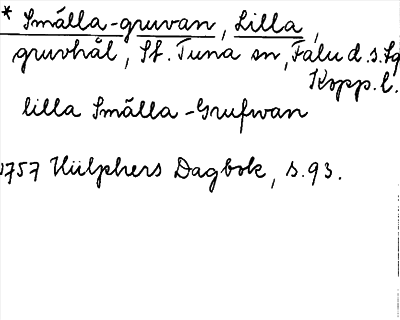 * Smålla-gruvan, Lilla,
gruvhål, St. Tuna sn, Falu d. s. lg
Kopp. l.
lilla Smålla-Grufwan
1757 Hülphers Dagbok, s. 93.